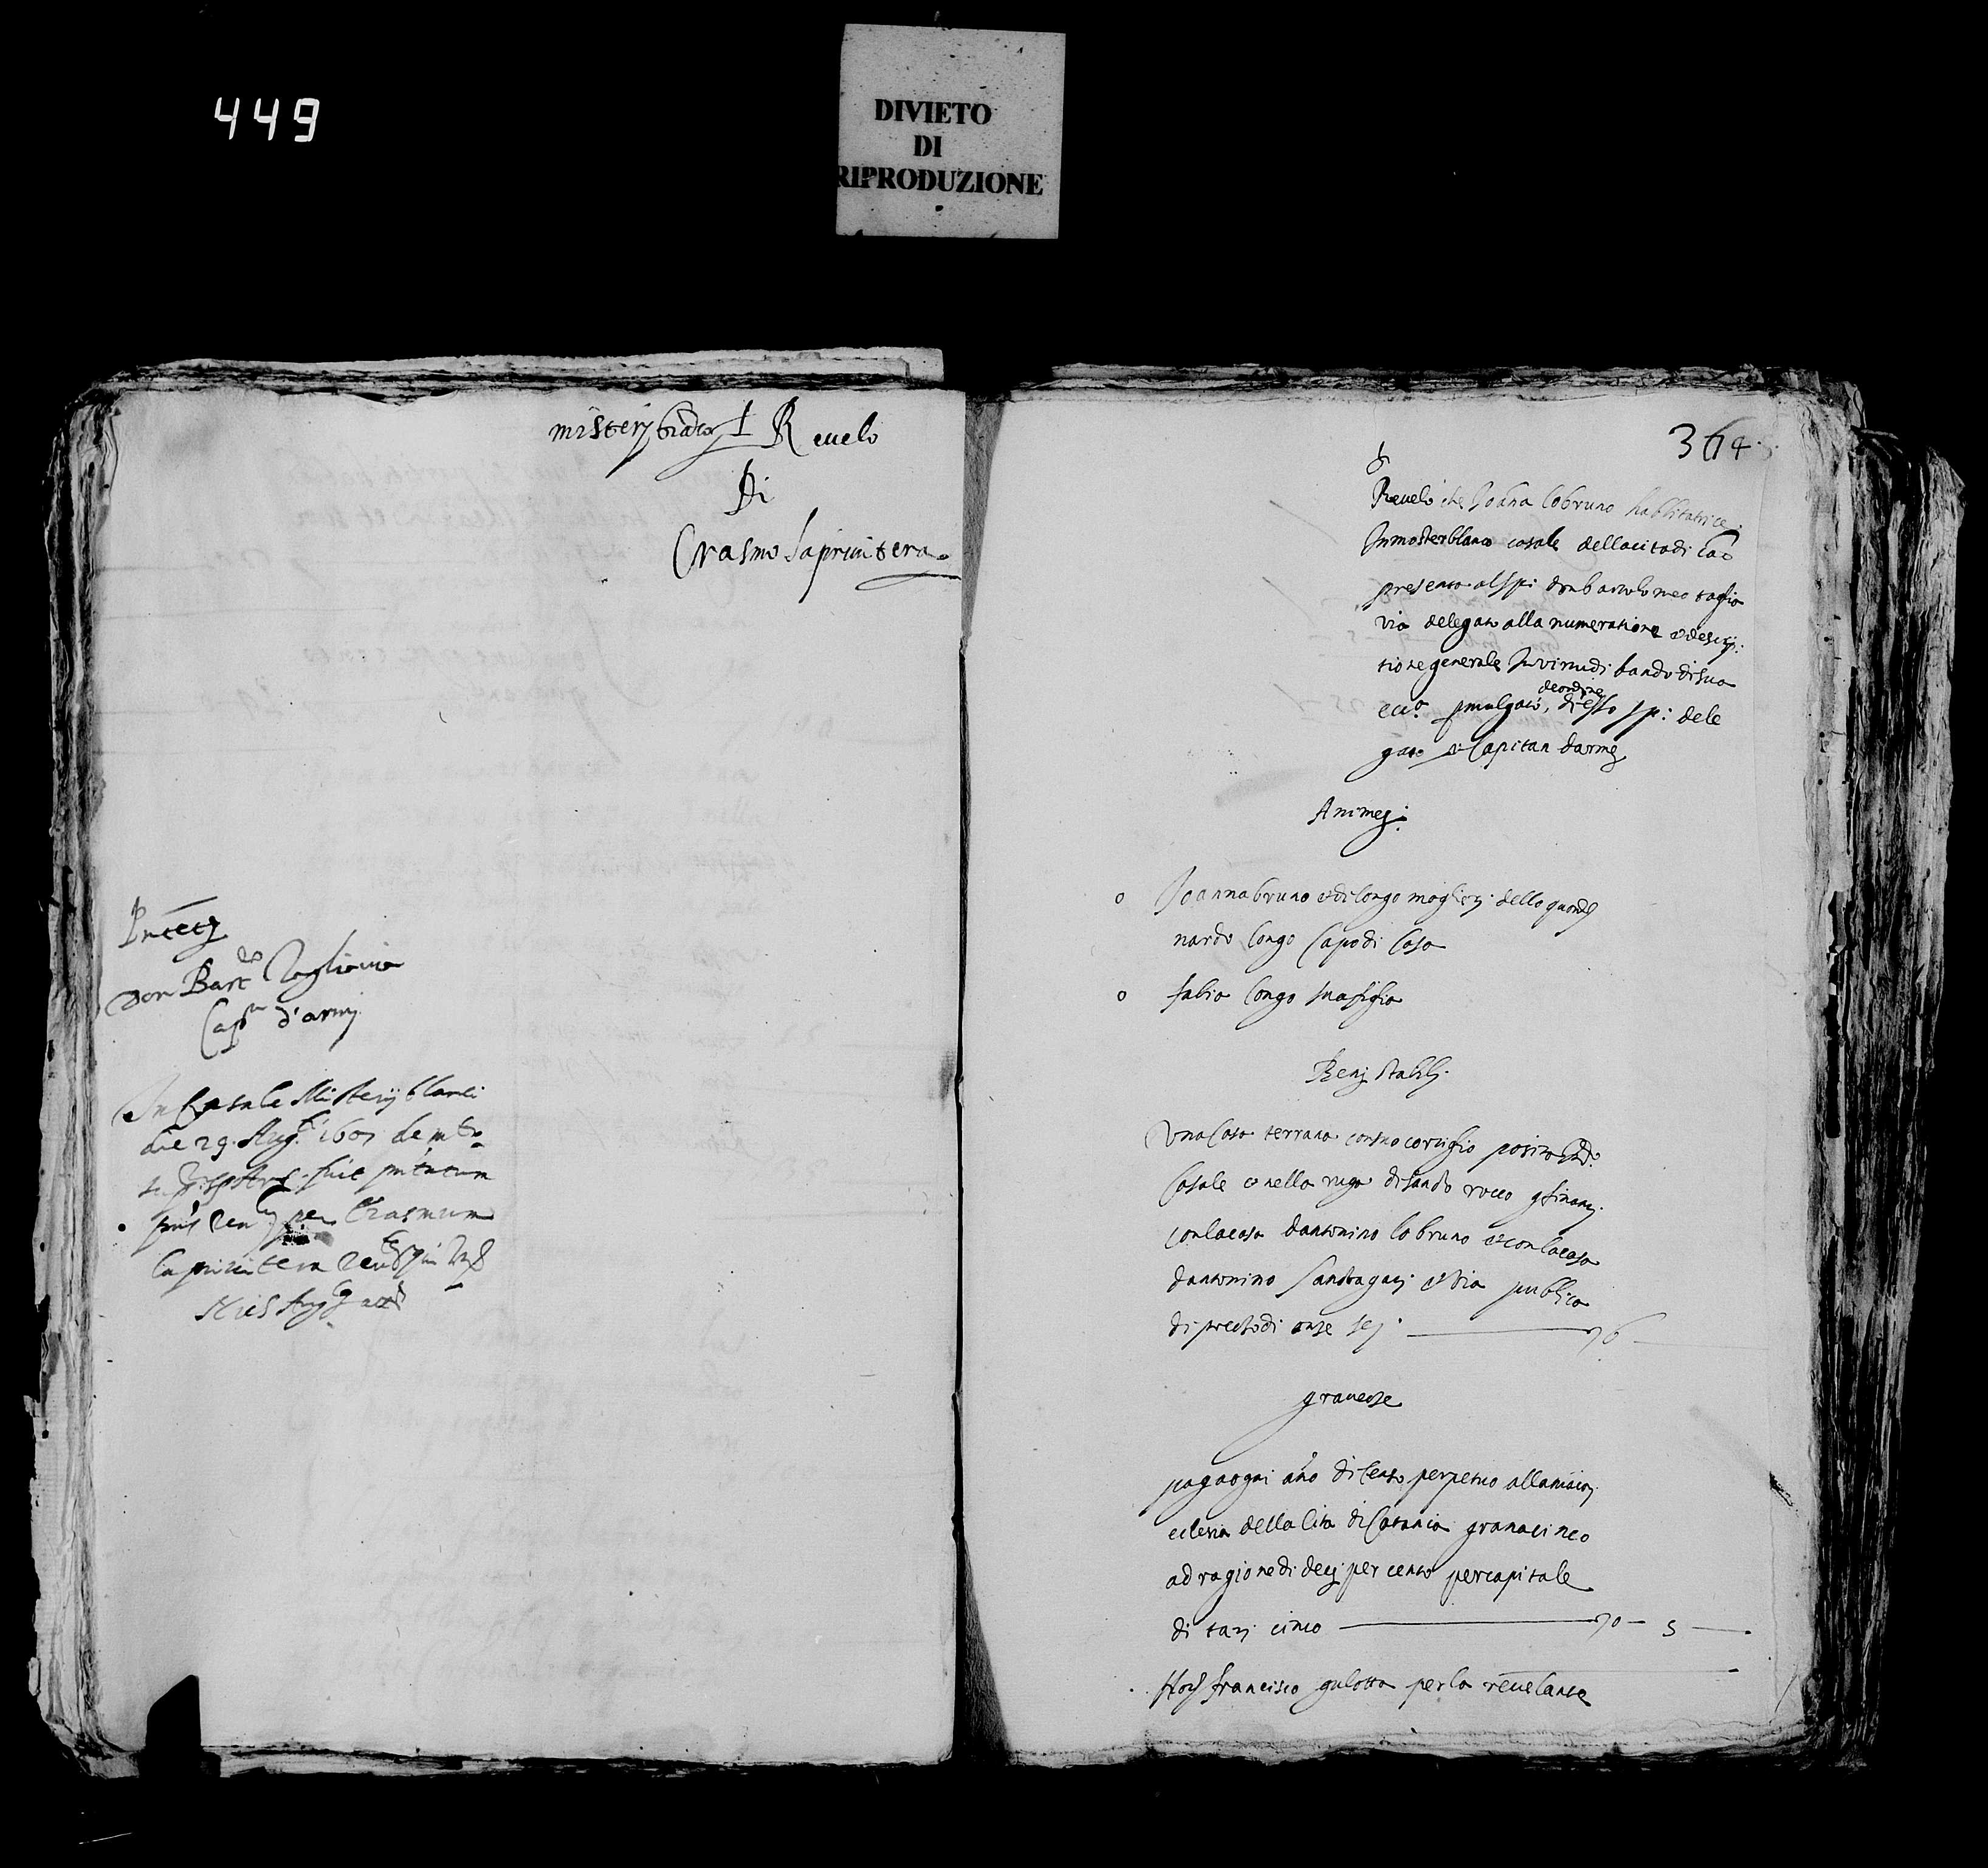 449
DIVIETO
DI
RIPRODUZIONE
misterijbianco Revelo
Di
Erasmo laprivitera
Don Bart.eo Tagliavia
Cap.n d'armi
In Casale Misterij blanci
die 29 Aug.ti 1607
fuit
per Erasmum
la privitera
364
Revelo che Joana lobruno habbitatrice
In mosterblanco casale dellacita di Cat.a
presenta al Sp: don bartolomeo taglia
via delegato alla numeratione et descrip:
tione generale In virtu di bando di sua
deordine
ecc.a pmulgato, di esso sp: dele
gato et Capitan darme
Anime:
o Joanna bruno et di longo moglieri dello quond
nardo longo Capo di Casa
o fabio longo suo figlio
Beni stabili
Una Casa terrana con suo cortiglio posito
Casale et nella ruga di santo rocco
con la casa dantonino lo bruno et con la casa
dantonino santagati et via publica
di prezzo di onze sei 6
gravezze
paga ogni anno di Censo perpetuo alla maior
eclesia della Cita di Catania grana cinco
ad ragione di deci per cento per capitale
di tari cinco 0 - 5
francisco gulotta per la revelante